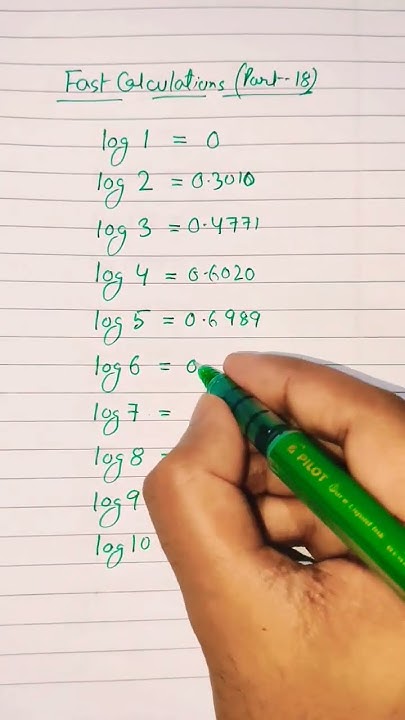 Fast Calculations (Part-18)
log 1 = 0
log 2 = 0.3010
log 3 = 0.4771
log 4 = 0.6020
log 5 = 0.6989
log 6 = 0
log 7 =
log 8 =
log 9
log 10
PILOT